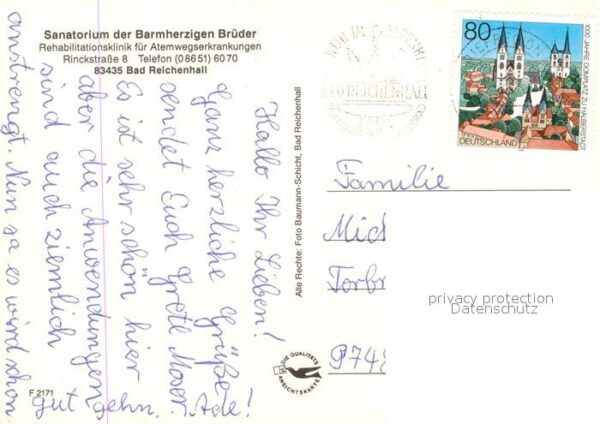 Sanatorium der Barmherzigen Brüder
Rehabilitationsklinik für Atemwegserkrankungen
Rinckstraße 8 Telefon (08651) 6070
83435 Bad Reichenhall
Hallo Ihr Lieben!
Ganz herzliche Grüße
sendet Euch Grete Moser
Es ist sehr schön hier
aber die Anwendungen
sind auch ziemlich
anstrengt. Nun ja es wird schon
gut gehn. Ade!
Alle Rechte: Foto Baumann-Schicht, Bad Reichenhall
F 2171
DIE QUALITÄTS
ANSICHTSKARTE
BAD REICHENHALL
80
DEUTSCHLAND
1000 JAHRE DOMPLATZ ZU HALBERSTADT
Familie
Mich
Torbr
privacy protection
Datenschutz